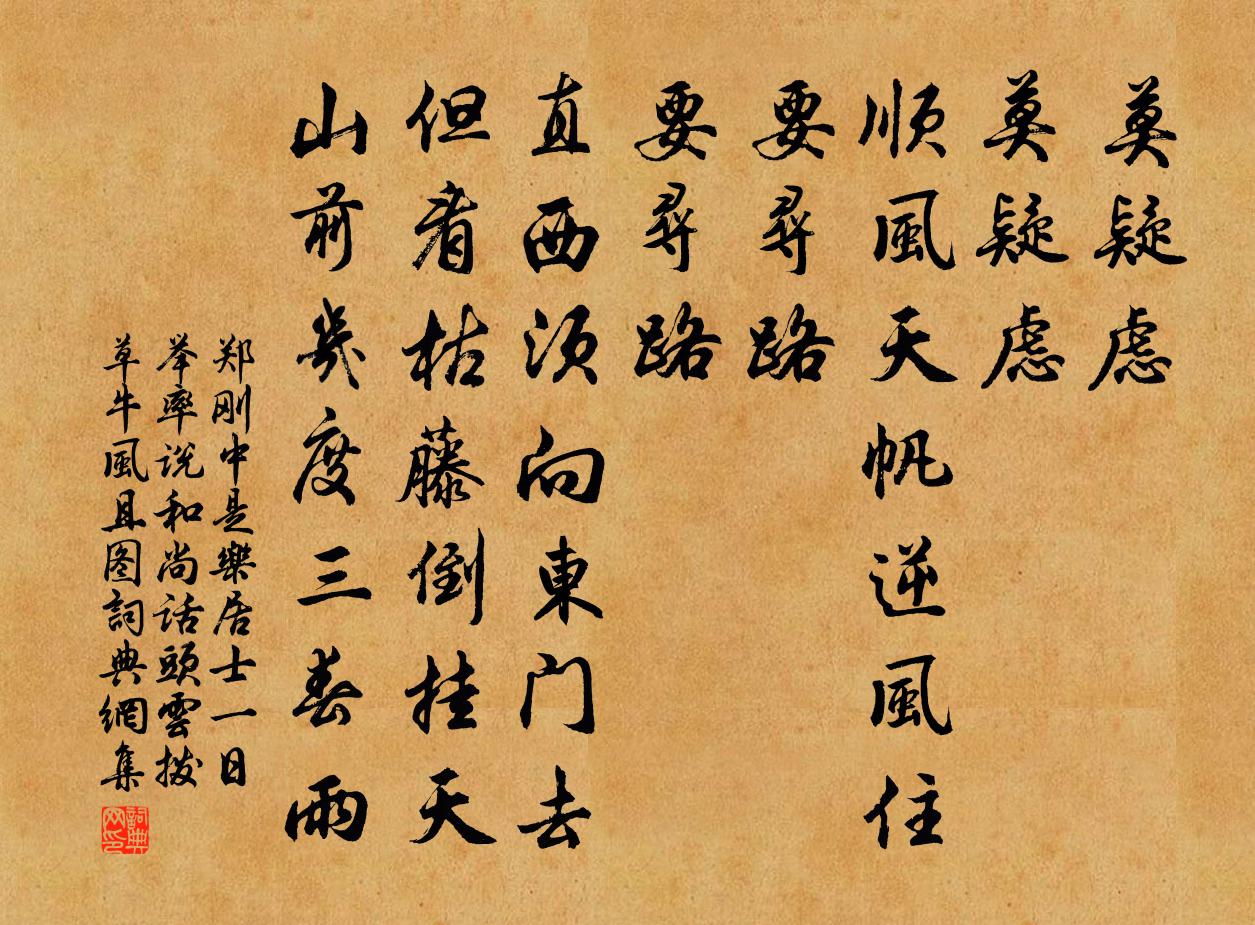 莫疑慮
莫疑慮
順風天帆逆風住
要尋路
要尋路
直西須向東門去
但看枯藤倒挂天
山前幾度三春雨
郑刚中是樂居士一日
举率说和尚话頭雲拨
草牛風且图詞典網集
詞典
网印